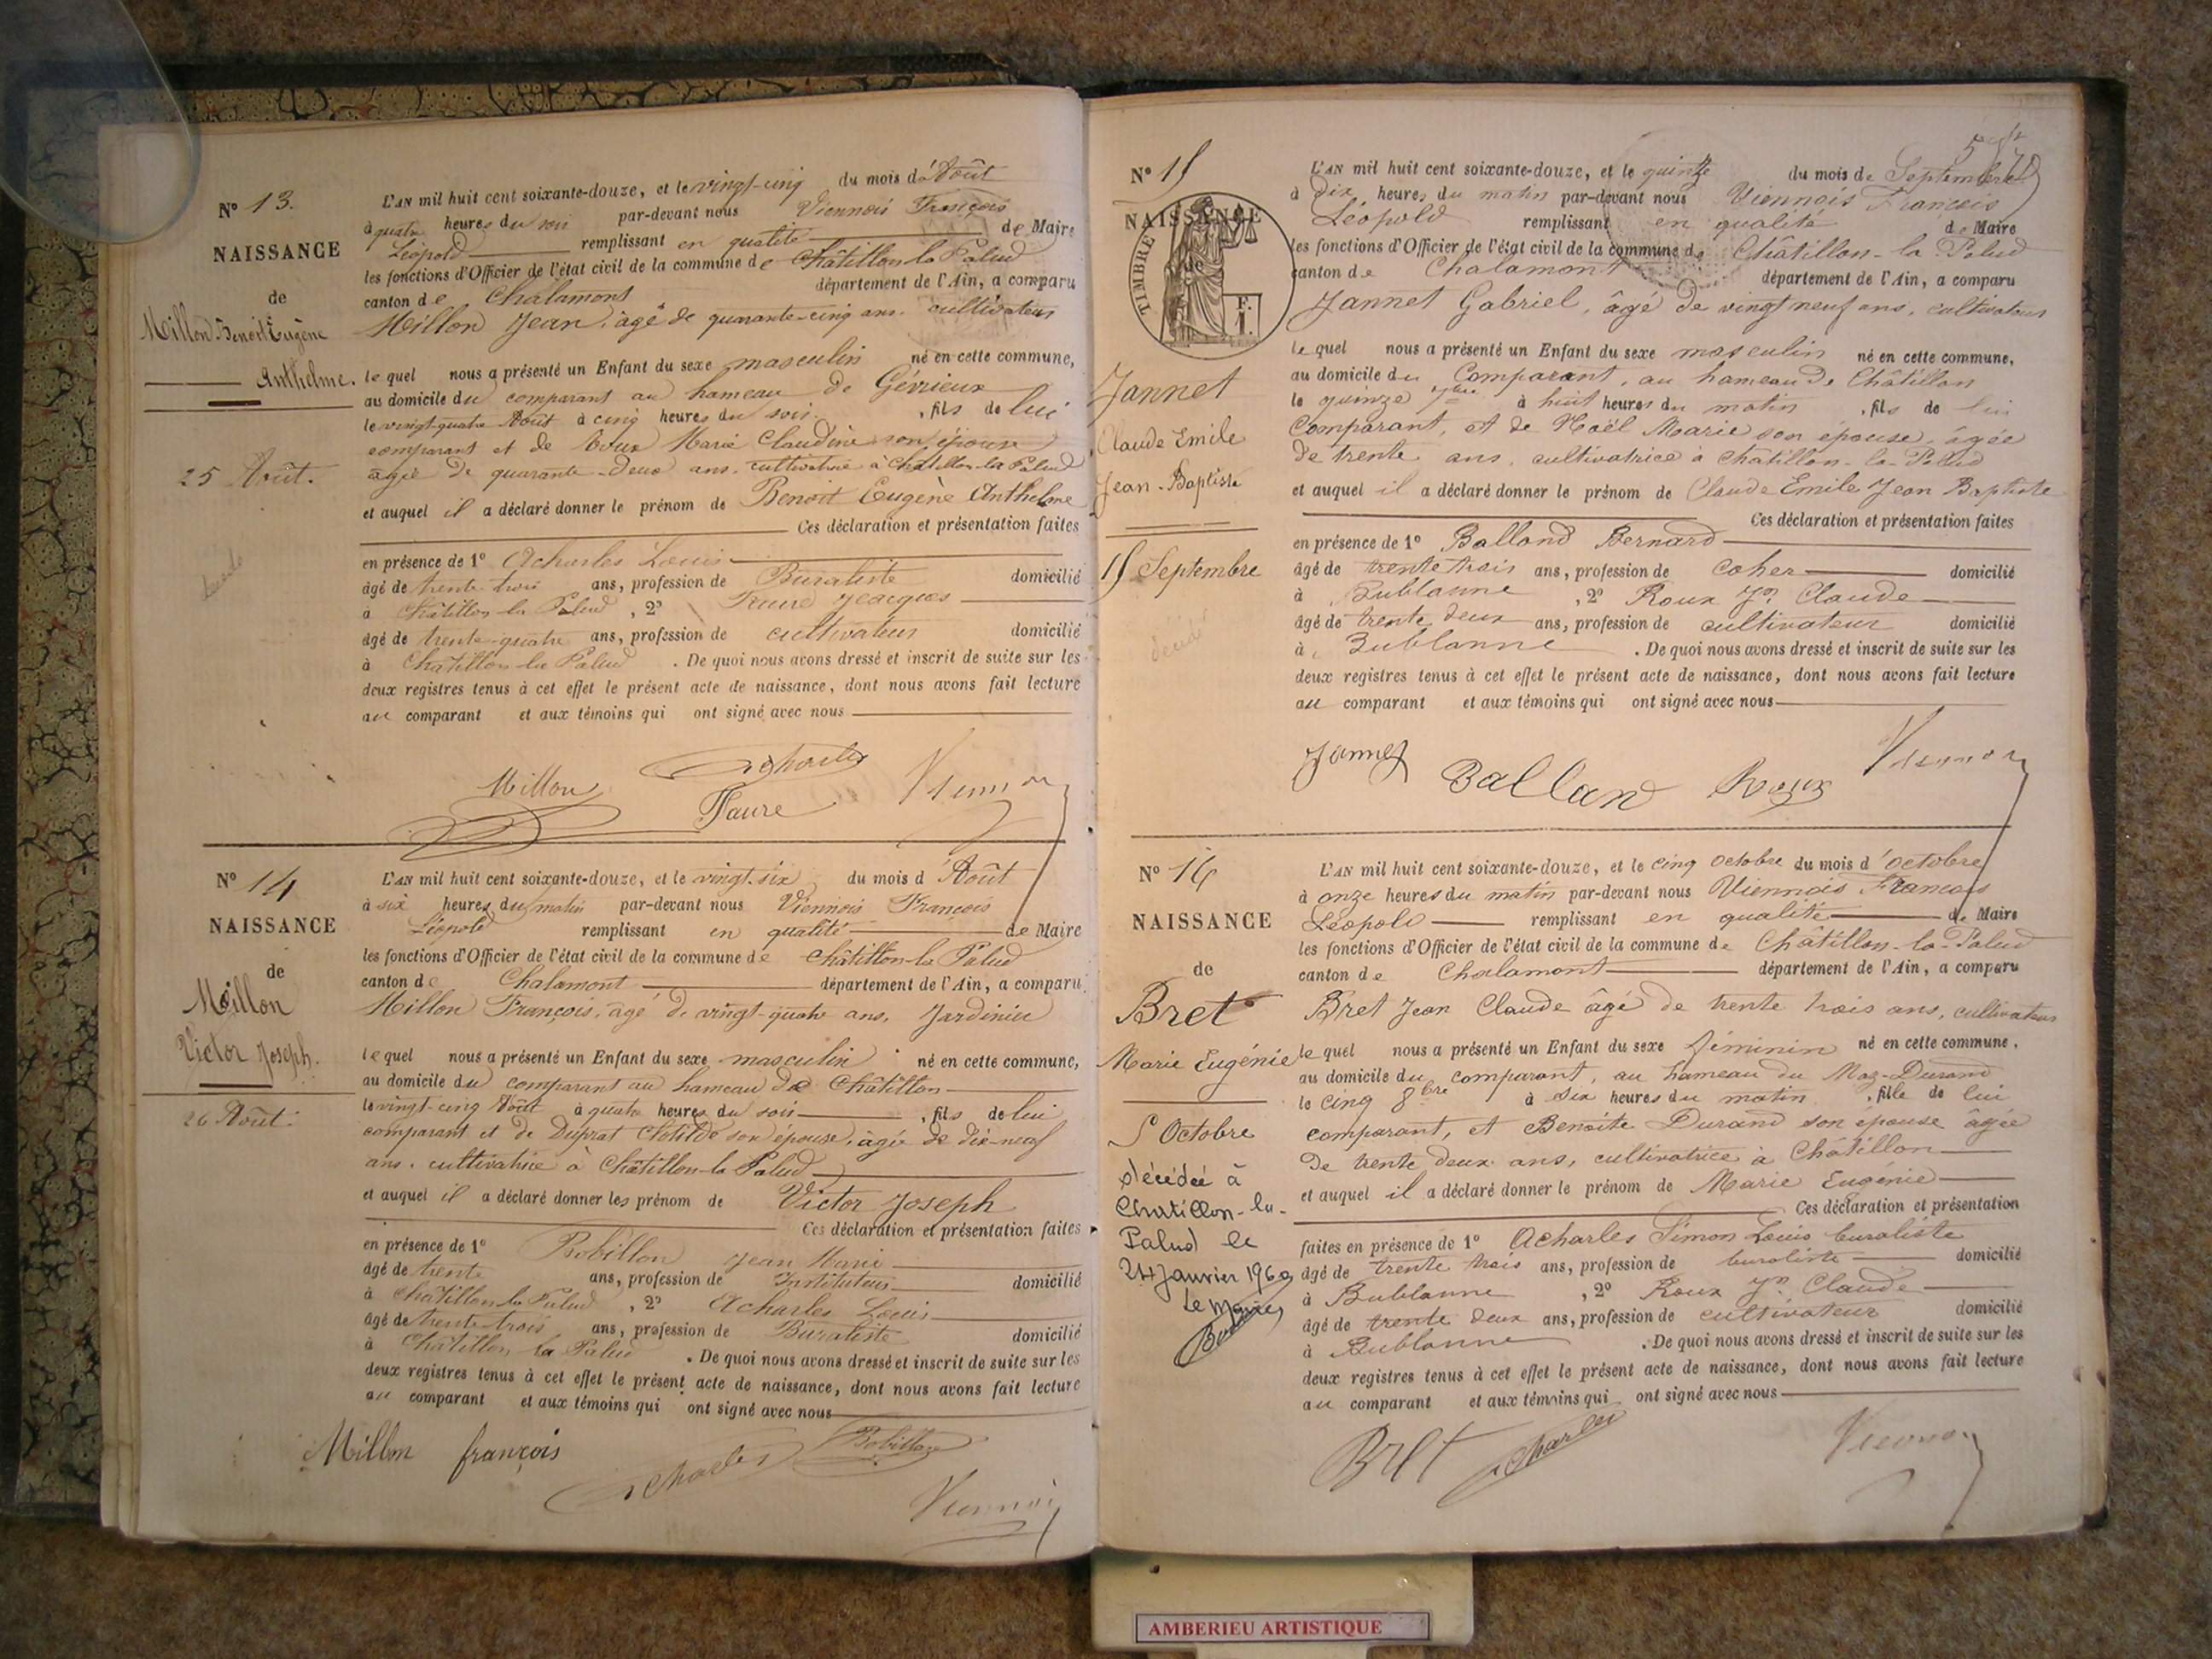 N° 13.
NAISSANCE
de
Millon Benoit Eugène
Anthelme.
25 Août.
L'AN mil huit cent soixante-douze, et le vingt-cinq du mois d'Août
à quatre heures du soir par-devant nous Viennois François
Léopold remplissant en qualité de Maire
les fonctions d'Officier de l'état civil de la commune de Châtillon la Palud
canton de Chalamont département de l'Ain, a comparu
Millon Jean, âgé de quarante-cinq ans, cultivateur
lequel nous a présenté un Enfant du sexe masculin né en cette commune,
au domicile du comparant au hameau de Gévrieux
le vingt-quatre Août à cinq heures du soir, fils de lui
comparant et de Marie Claudine son épouse
âgée de quarante-deux ans, cultivatrice à Châtillon-la-Palud
et auquel il a déclaré donner le prénom de Benoit Eugène Anthelme
Ces déclaration et présentation faites
en présence de 1° Acharles Louis
âgé de trente trois ans, profession de Buraliste domicilié
à Châtillon la Palud, 2° Faure Jacques
âgé de trente-quatre ans, profession de cultivateur domicilié
à Châtillon la Palud. De quoi nous avons dressé et inscrit de suite sur les
deux registres tenus à cet effet le présent acte de naissance, dont nous avons fait lecture
au comparant et aux témoins qui ont signé avec nous
Millon Acharles Faure Viennois
N° 14
NAISSANCE
de
Millon
Victor Joseph.
26 Août.
L'AN mil huit cent soixante-douze, et le vingt-six du mois d'Août
à six heures du matin par-devant nous Viennois François
Léopold remplissant en qualité de Maire
les fonctions d'Officier de l'état civil de la commune de Châtillon-la Palud
canton de Chalamont département de l'Ain, a comparu
Millon François, âgé de vingt-quatre ans, Jardinier
lequel nous a présenté un Enfant du sexe masculin né en cette commune,
au domicile du comparant au hameau de Châtillon
le vingt-cinq Août à quatre heures du soir, fils de lui
comparant et de Duprat Clotilde son épouse, âgée de dix-neuf
ans, cultivatrice à Châtillon-la Palud
et auquel il a déclaré donner les prénom de Victor Joseph
Ces déclaration et présentation faites
en présence de 1° Bobillon Jean Marie
âgé de trente ans, profession de Instituteur domicilié
à Châtillon la Palud, 2° Acharles Louis
âgé de trente-trois ans, profession de Buraliste domicilié
à Châtillon la Palud. De quoi nous avons dressé et inscrit de suite sur les
deux registres tenus à cet effet le présent acte de naissance, dont nous avons fait lecture
au comparant et aux témoins qui ont signé avec nous
Millon françois Acharles Bobillon
Viennois
5
N° 15
NAISSANCE
de
TIMBRE
F.
1.
Jannet
Claude Emile
Jean-Baptiste
15 Septembre
décédé
L'AN mil huit cent soixante-douze, et le quinze du mois de Septembre
à dix heures du matin par-devant nous Viennois François
Léopold remplissant en qualité de Maire
les fonctions d'Officier de l'état civil de la commune de Châtillon-la-Palud
canton de Chalamont département de l'Ain, a comparu
Jannet Gabriel, âgé de vingt neuf ans, cultivateur
lequel nous a présenté un Enfant du sexe masculin né en cette commune,
au domicile du Comparant, au hameau de Châtillon
le quinze 7bre à huit heures du matin, fils de lui
Comparant, et de Noël Marie son épouse, âgée
de trente ans, cultivatrice à Châtillon-la-Palud
et auquel il a déclaré donner le prénom de Claude Emile Jean Baptiste
Ces déclaration et présentation faites
en présence de 1° Balland Bernard
âgé de trente trois ans, profession de domicilié
à Bublanne, 2° Roux Jn Claude
âgé de trente deux ans, profession de cultivateur domicilié
à Bublanne. De quoi nous avons dressé et inscrit de suite sur les
deux registres tenus à cet effet le présent acte de naissance, dont nous avons fait lecture
au comparant et aux témoins qui ont signé avec nous
Jannet Balland Roux Viennois
N° 16
NAISSANCE
de
Bret
Marie Eugénie
5 Octobre
décédée à
Chatillon-la-
Palud le
24 Janvier 1960
Le Maire,
L'AN mil huit cent soixante-douze, et le cinq octobre du mois d'octobre
à onze heures du matin par-devant nous Viennois François
Léopold remplissant en qualité de Maire
les fonctions d'Officier de l'état civil de la commune de Châtillon-la-Palud
canton de Chalamont département de l'Ain, a comparu
Bret Jean Claude âgé de trente trois ans, cultivateur
lequel nous a présenté un Enfant du sexe féminin né en cette commune,
au domicile du comparant, au hameau du Maz-Durand
le cinq 8bre à six heures du matin, fille de lui
comparant, et Benoîte Durand son épouse âgée
de trente deux ans, cultivatrice à Châtillon
et auquel il a déclaré donner le prénom de Marie Eugénie
Ces déclaration et présentation
faites en présence de 1° Acharles Simon Louis buraliste
âgé de trente trois ans, profession de buraliste domicilié
à Bublanne, 2° Roux Jn Claude
âgé de trente deux ans, profession de cultivateur domicilié
à Bublanne. De quoi nous avons dressé et inscrit de suite sur les
deux registres tenus à cet effet le présent acte de naissance, dont nous avons fait lecture
au comparant et aux témoins qui ont signé avec nous
Bret Acharles Viennois
AMBERIEU ARTISTIQUE